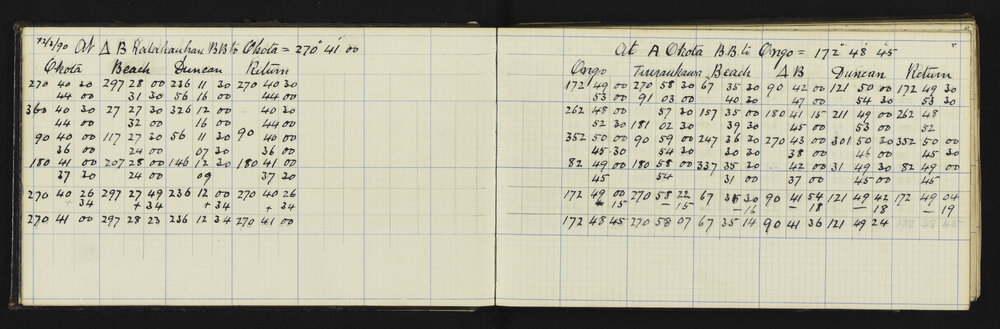 12/2/90 At △ B Rata BB to Okota = 270° 41' 00
Okota Beach Duncan Return
270 40 30 297 28 00 236 11 30 270 40 30
44 00 31 30 56 16 00 44 00
360 40 30 27 27 30 326 12 00 40 30
44 00 32 00 16 00 44 00
90 40 00 117 27 30 56 11 30 90 40 00
36 00 24 00 07 30 36 00
180 41 00 207 28 00 146 12 30 180 41 00
37 30 24 00 09 37 30
270 40 26 297 27 49 236 12 00 270 40 26
34 + 34 + 34 + 34
270 41 00 297 28 23 236 12 34 270 41 00
At △ Okota BB to Ongo = 172° 48' 45
Ongo Beach △ B Duncan Return
172 49 00 270 58 30 67 35 30 90 42 00 121 50 00 172 49 30
53 00 91 03 00 40 30 47 00 54 30 53 30
262 48 00 57 30 157 35 00 180 41 15 211 49 00 262 48
52 30 181 02 30 39 30 45 00 53 00 52
352 50 00 90 59 00 247 36 30 270 43 00 301 50 30 352 50 00
45 30 54 30 30 30 38 00 46 00 45 30
82 49 00 180 58 00 337 35 30 42 00 31 49 30 82 49 00
45 54 31 00 37 00 45 00 45
172 49 00 270 58 22 67 35 30 90 41 54 121 49 42 172 49 04
- 15 - 15 - 16 18 - 18 - 19
172 48 45 270 58 07 67 35 14 90 41 36 121 49 24 172 48 45